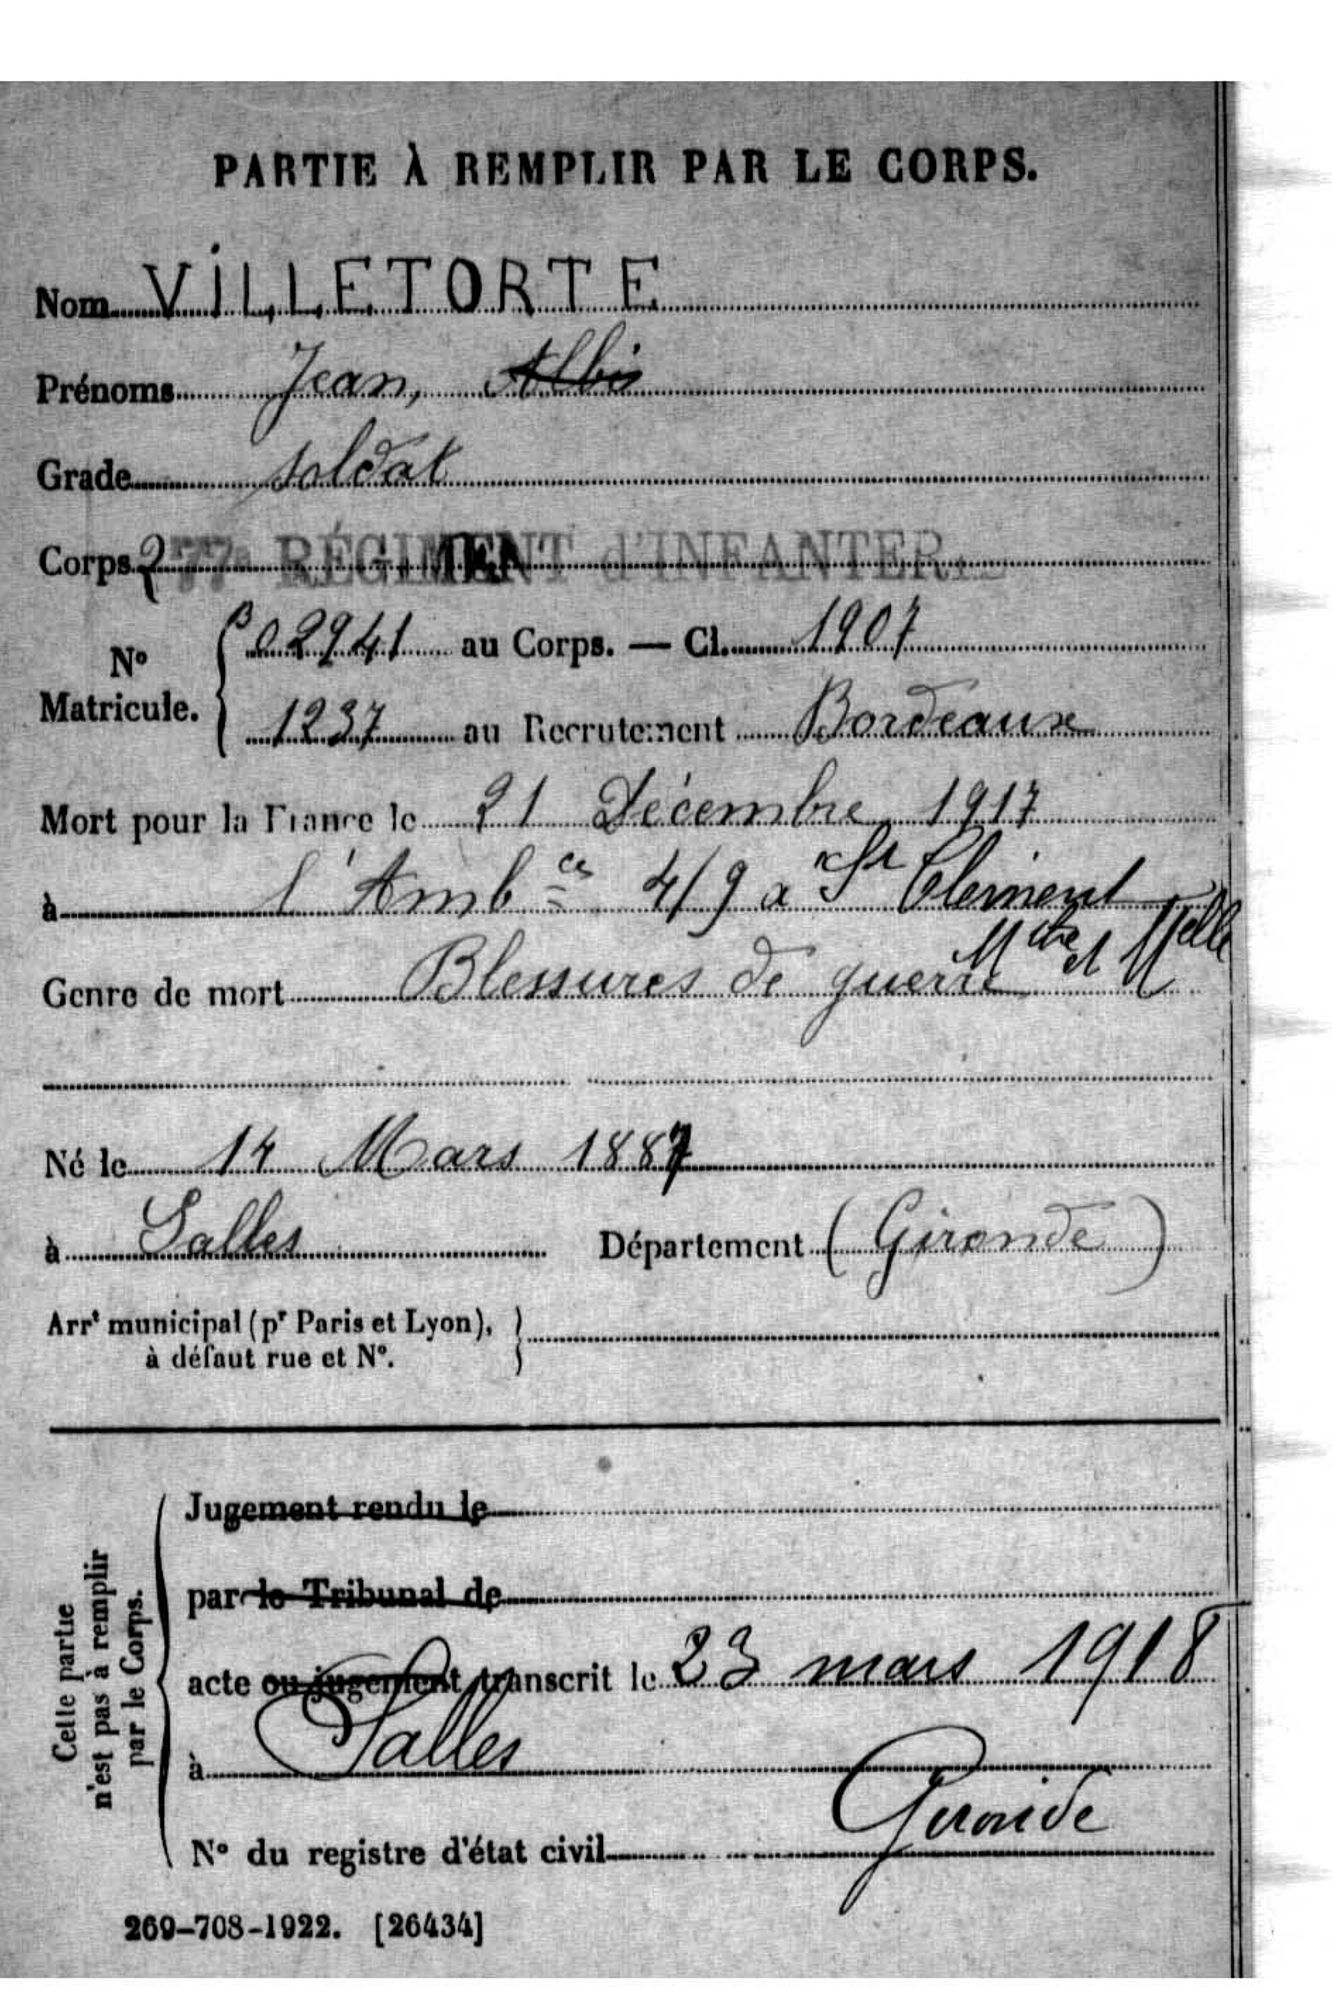 PARTIE À REMPLIR PAR LE CORPS.
Nom VILLETORTE
Prénoms Jean, Albis
Grade soldat
Corps 277e RÉGIMENT d'INFANTERIE
No Matricule. 02941 au Corps. — Cl. 1907
1237 au Recrutement Bordeaux
Mort pour la France le 21 Décembre 1917
à l'Ambce 4/9 a St Clément
Mthe et Melle
Genre de mort Blessures de guerre
Né le 14 Mars 1887
à Salles Département (Gironde)
Arrt municipal (pr Paris et Lyon),
à défaut rue et No.
Cette partie
n'est pas à remplir
par le Corps.
Jugement rendu le
par le Tribunal de
acte ou jugement transcrit le 23 mars 1918
à Salles
Gironde
No du registre d'état civil
269-708-1922. [26434]